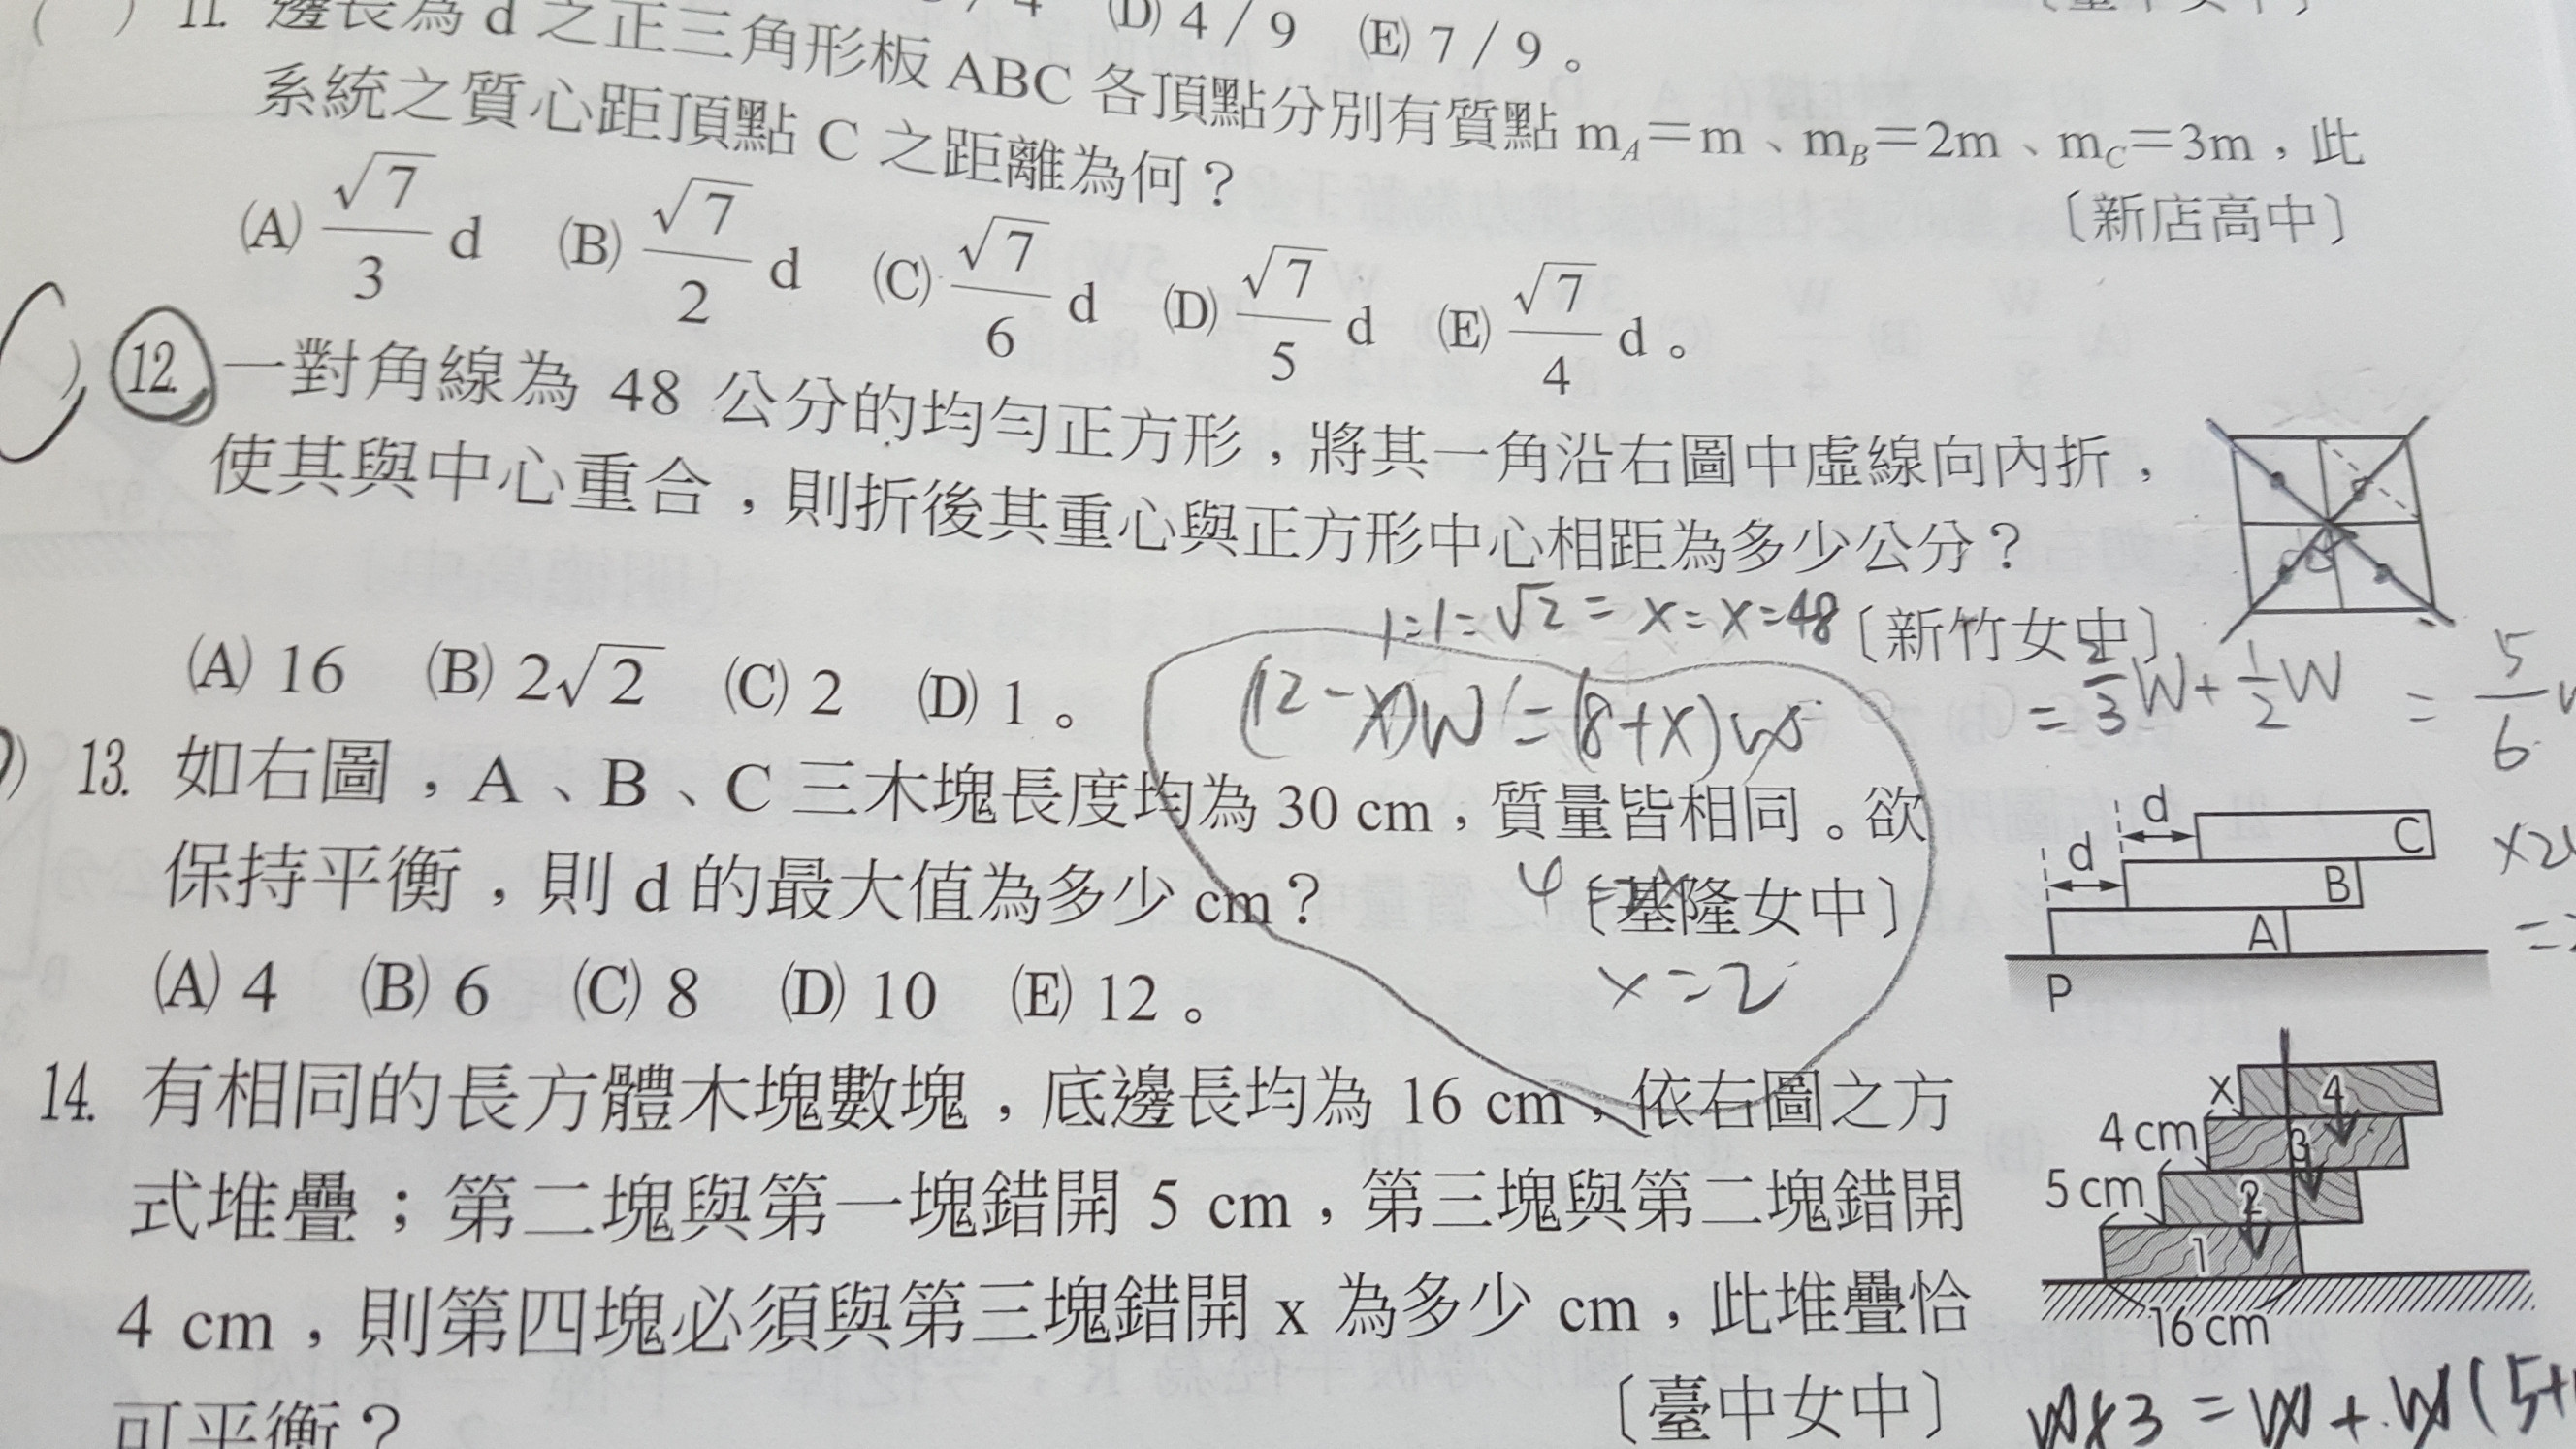 (D) 4 / 9 (E) 7 / 9。
( ) 11. 邊長為 d 之正三角形板 ABC 各頂點分別有質點 m_A=m、m_B=2m、m_C=3m，此
系統之質心距頂點 C 之距離為何？
〔新店高中〕
(A) √7/3 d (B) √7/2 d (C) √7/6 d (D) √7/5 d (E) √7/4 d。
) 12. 一對角線為 48 公分的均勻正方形，將其一角沿右圖中虛線向內折，
使其與中心重合，則折後其重心與正方形中心相距為多少公分？
1:1:√2 = x:x:48 〔新竹女中〕
= 2/3 W + 1/2 W = 5/6
(A) 16 (B) 2√2 (C) 2 (D) 1。
(12-x)W = (8+x)W
) 13. 如右圖，A、B、C 三木塊長度均為 30 cm，質量皆相同。欲
保持平衡，則 d 的最大值為多少 cm？
〔基隆女中〕
x=2
(A) 4 (B) 6 (C) 8 (D) 10 (E) 12。
d
C
d
B
A
P
14. 有相同的長方體木塊數塊，底邊長均為 16 cm，依右圖之方
式堆疊；第二塊與第一塊錯開 5 cm，第三塊與第二塊錯開
4 cm，則第四塊必須與第三塊錯開 x 為多少 cm，此堆疊恰
可平衡？
〔臺中女中〕
x
4
4 cm
3
5 cm
2
1
16 cm
W×3 = W + W(5+